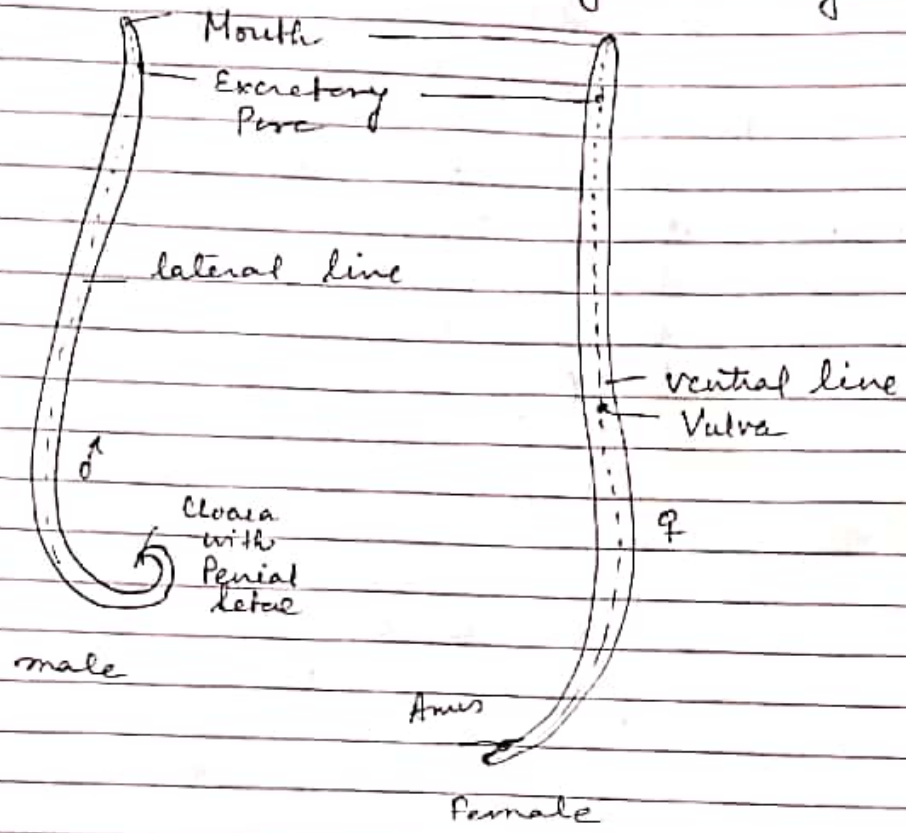 Mouth
Excretory
Pore
lateral line
ventral line
Vulva
♂
♀
Cloaca
with
Penial
Setae
male
Anus
Female